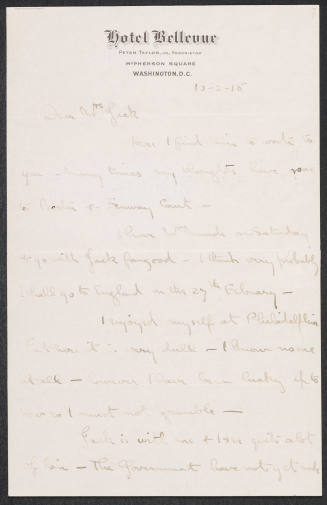 Hotel Bellevue
Peter Taylor, Jr. Proprietor
McPherson Square
Washington, D.C.
13-2-15
Dear Mrs Jack
Here I find time to write to
you - many times my thoughts have gone
to Boston & Fenway Court -
I have on Saturday
to go with Jack - I think very probably
I shall go to England on the 27th February -
I enjoyed myself at Philadelphia
but here it is very dull - I know no one
at all - however I have been lucky up to
now so I must not grumble -
Jack is with me & I see quite a lot
of him - The Government have not yet